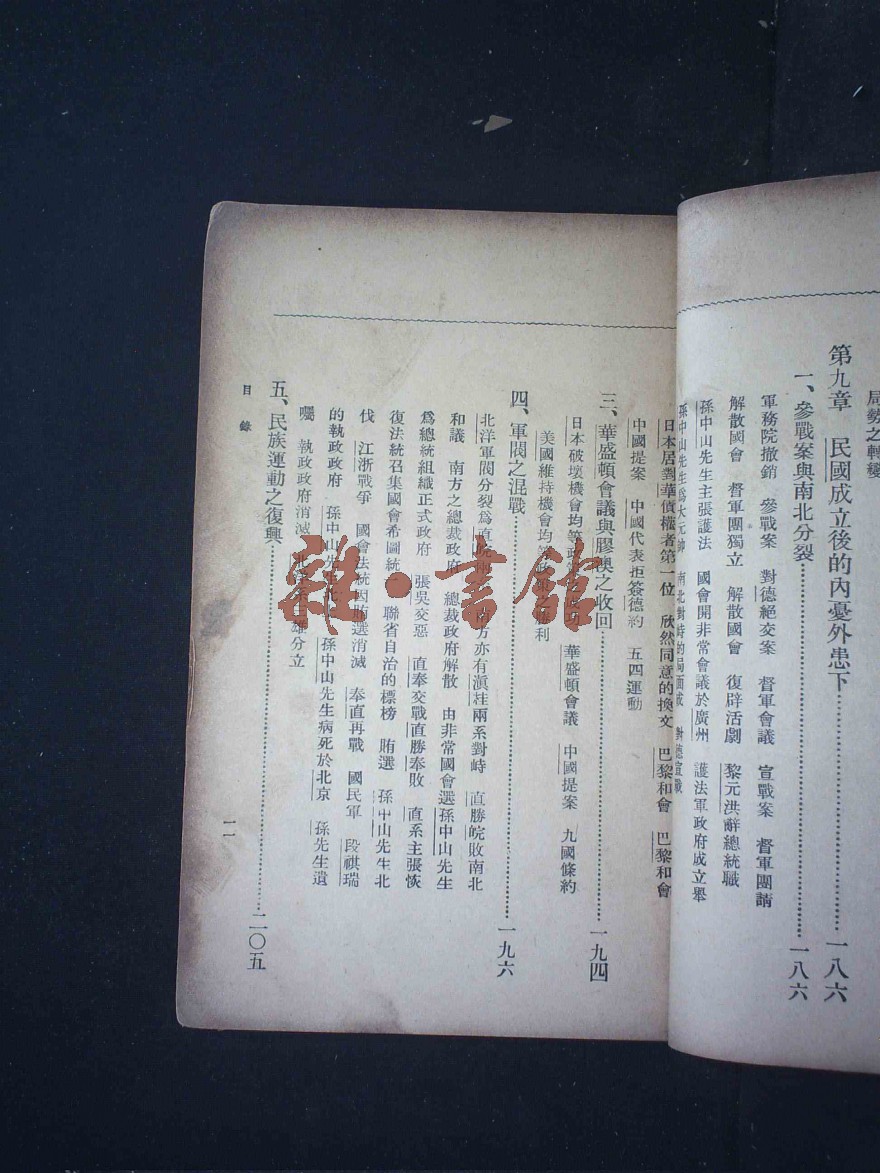 局勢之轉變
第九章　民國成立後的內憂外患下……一八六
一、參戰案與南北分裂……一八六
軍務院撤銷　參戰案　對德絕交案　督軍會議　宣戰案　督軍團請
解散國會　督軍團獨立　解散國會　復辟活劇　黎元洪辭總統職
孫中山先生主張護法　國會開非常會議於廣州　護法軍政府成立舉
孫中山先生爲大元帥　南北對峙的局面成　對德宣戰
日本居對華債權者第一位　欣然同意的換文　巴黎和會　巴黎和會
中國提案　中國代表拒簽德約　五四運動
三、華盛頓會議與膠澳之收回……一九四
日本破壞機會均等　華盛頓會議　中國提案　九國條約
美國維持機會均等　利
四、軍閥之混戰……一九六
北洋軍閥分裂爲直　方亦有滇桂兩系對峙　直勝皖敗南北
和議　南方之總裁政府　總裁政府解散　由非常國會選孫中山先生
爲總統組織正式政府　張吳交惡　直奉交戰直勝奉敗　直系主張恢
復法統召集國會希圖統一　聯省自治的標榜　賄選　孫中山先生北
伐　江浙戰爭　國會法統因賄選消滅　奉直再戰　國民軍　段祺瑞
的執政政府　孫中山先生　孫中山先生病死於北京　孫先生遺
囑　執政政府消滅　雄分立
五、民族運動之復興……二〇五
目錄
一一
雜·書館